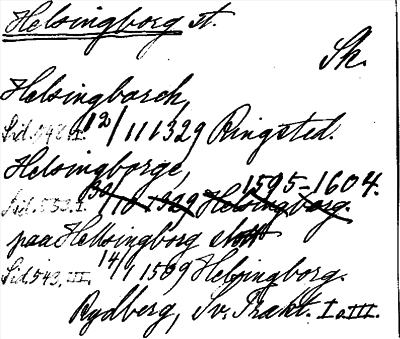 Helsingborg st.
Sk.
Helsingborch,
Sid. 548. II. 12/11 1329 Ringsted.
Helsingborge, 1595-1604.
Sid. 553. I. 30/10 1329 Helsingborg.
paa Helsingborg slott
Sid 543. III. 14/1 1509 Helsingborg.
Rydberg, Sv. Trakt. I o. III.